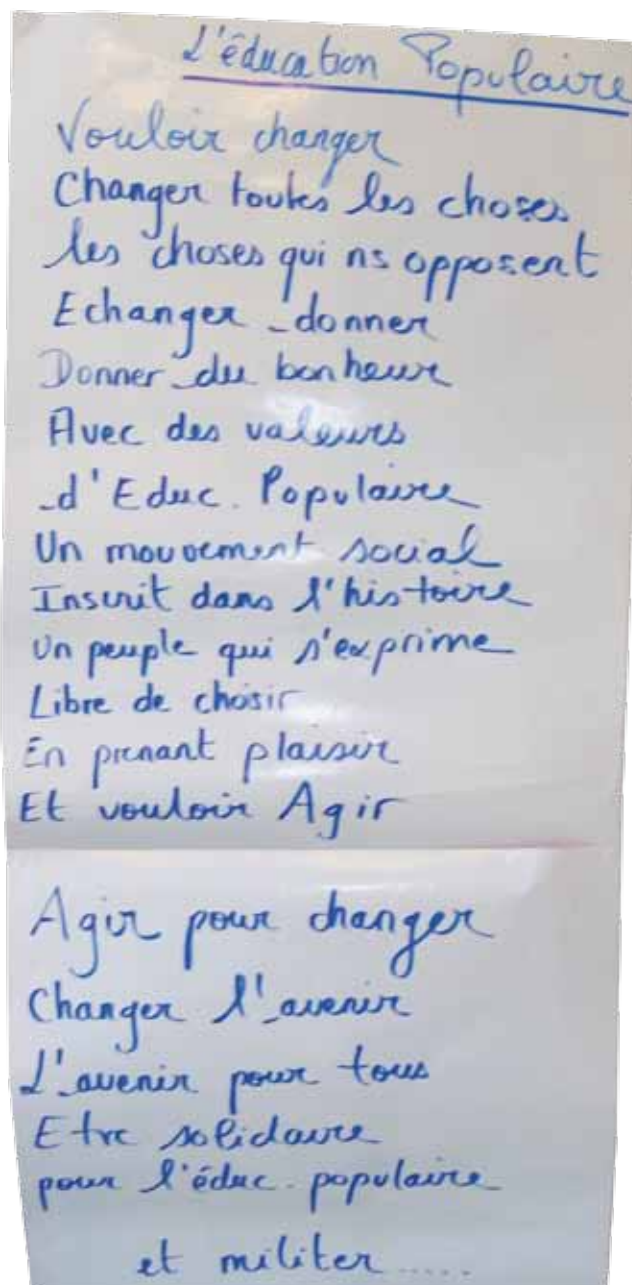 L'éducation Populaire
Vouloir changer
Changer toutes les choses
les choses qui ns opposent
Echanger donner
Donner du bonheur
Avec des valeurs
d'Educ. Populaire
Un mouvement social
Inscrit dans l'histoire
Un peuple qui s'exprime
Libre de choisir
En prenant plaisir
Et vouloir Agir
Agir pour changer
Changer l'avenir
L'avenir pour tous
Etre solidaire
pour l'éduc. populaire
et militer.....